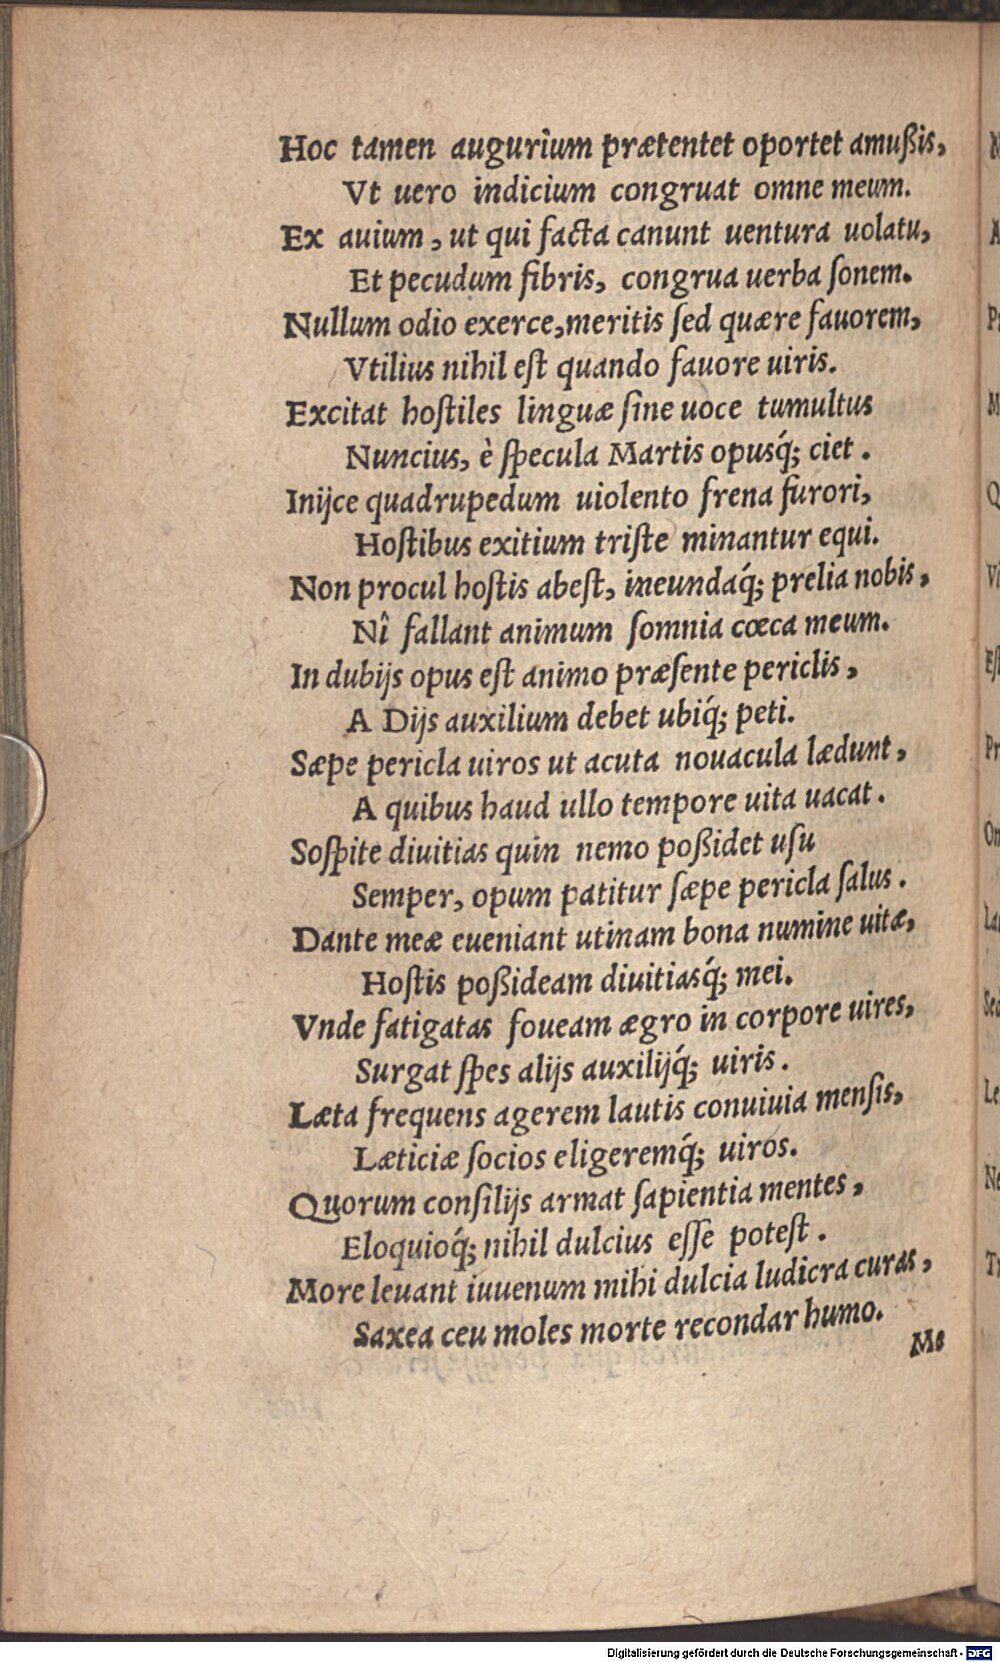 Hoc tamen augurium prætentet oportet amußis,
Vt uero indicium congruat omne meum.
Ex auium, ut qui facta canunt uentura uolatu,
Et pecudum fibris, congrua uerba ſonem.
Nullum odio exerce, meritis ſed quære fauorem,
Vtilius nihil eſt quando fauore uiris.
Excitat hoſtiles linguæ ſine uoce tumultus
Nuncius, è ſpecula Martis opusq́; ciet.
Inijce quadrupedum uiolento frena furori,
Hoſtibus exitium triſte minantur equi.
Non procul hoſtis abeſt, ineundaq́; prelia nobis,
Nî fallant animum ſomnia cœca meum.
In dubijs opus eſt animo præſente periclis,
A Dijs auxilium debet ubiq́; peti.
Sæpe pericla uiros ut acuta nouacula lædunt,
A quibus haud ullo tempore uita uacat.
Soſpite diuitias quin nemo poßidet uſu
Semper, opum patitur ſæpe pericla ſalus.
Dante meæ eueniant utinam bona numine uitæ,
Hoſtis poßideam diuitiasq́; mei.
Vnde fatigatas foueam ægro in corpore uires,
Surgat ſpes alijs auxilijq́; uiris.
Læta frequens agerem lautis conuiuia menſis,
Læticiæ ſocios eligeremq́; uiros.
Quorum conſilijs armat ſapientia mentes,
Eloquioq́; nihil dulcius eſſe poteſt.
More leuant iuuenum mihi dulcia ludicra curas,
Saxea ceu moles morte recondar humo.
Me
Digitalisierung gefördert durch die Deutsche Forschungsgemeinschaft - DFG